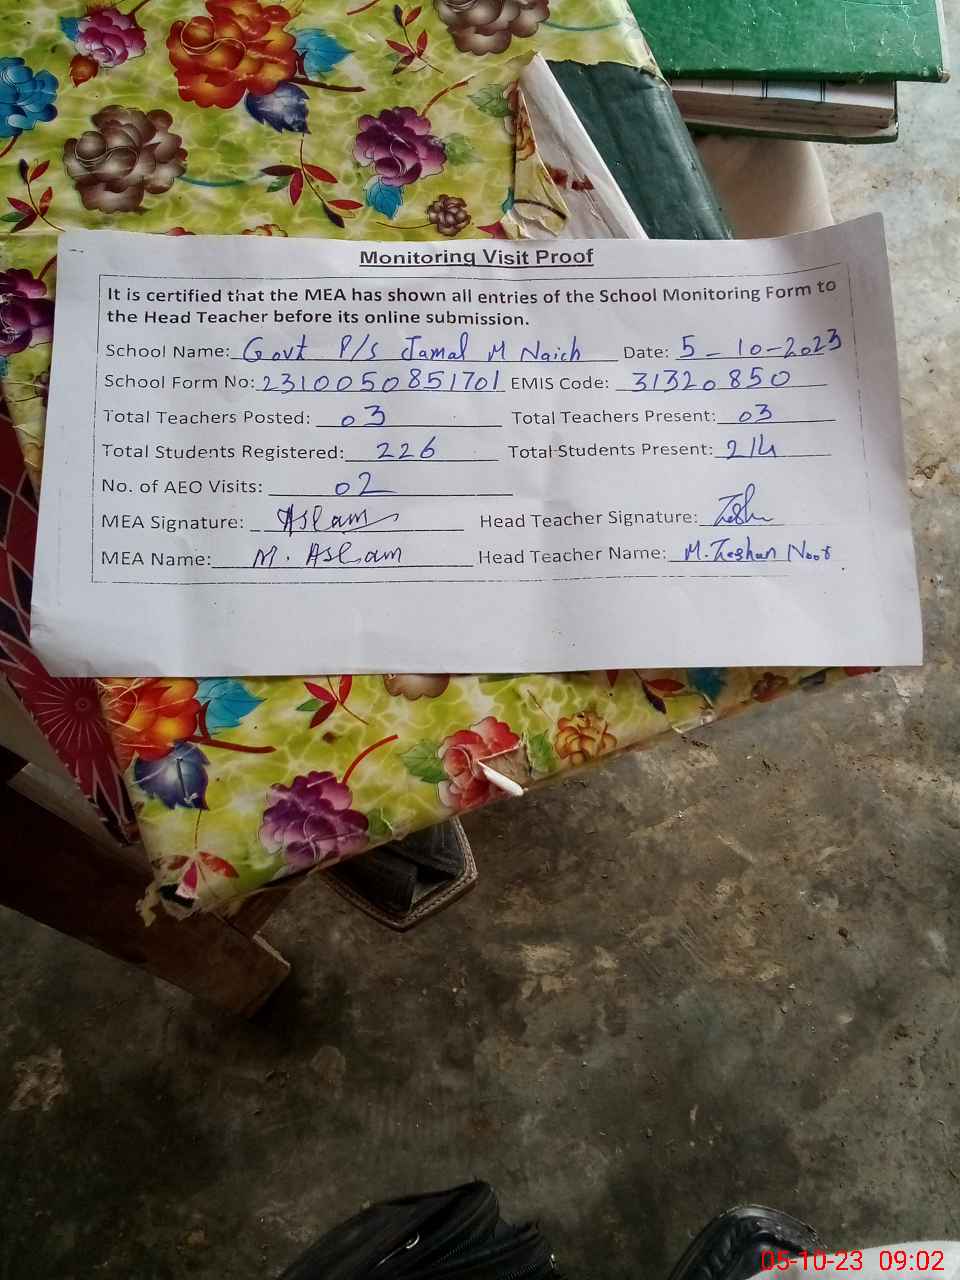 Monitoring Visit Proof
It is certified that the MEA has shown all entries of the School Monitoring Form to
the Head Teacher before its online submission.
School Name: Govt P/S Jamal M Naich Date: 5-10-2023
School Form No: 2310050851701 EMIS Code: 31320850
Total Teachers Posted: 03 Total Teachers Present: 03
Total Students Registered: 226 Total Students Present: 214
No. of AEO Visits: 02
MEA Signature: Aslam Head Teacher Signature:
MEA Name: M. Aslam Head Teacher Name: M. Zeshan Noor
05-10-23 09:02